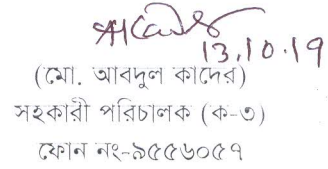 13.10.19
(মো. আবদুল কাদের)
সহকারী পরিচালক (ক-৩)
ফোন নং-৯৫৫৬০৫৭